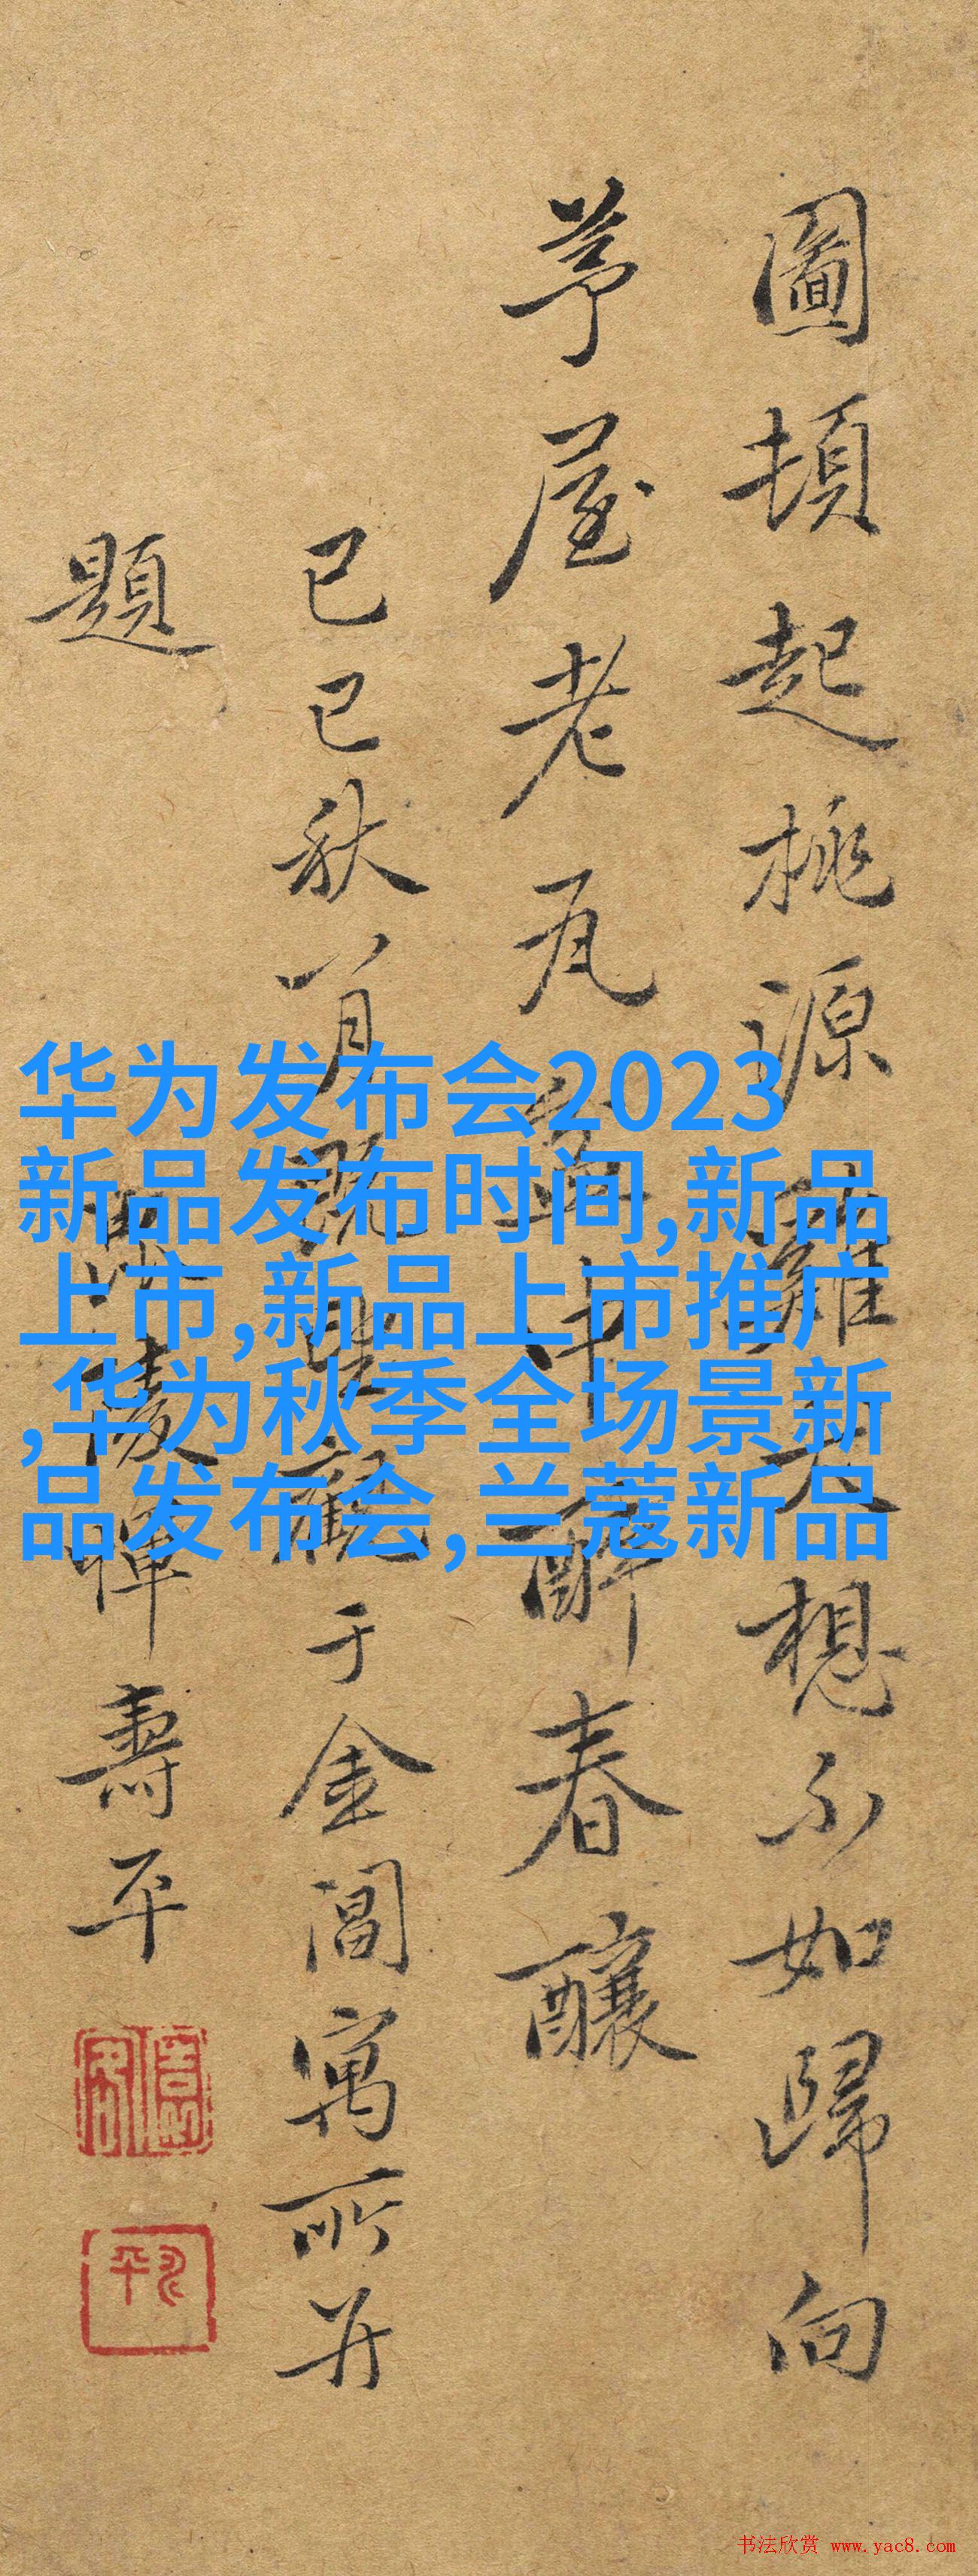 圖頓起桃源雞犬想不如歸向
茅屋老瓦盆中醉春釀
己巳秋八月觀于金閶寓所并
題
陵惲壽平
华为发布会2023
新品发布时间,新品
上市,新品上市推广
,华为秋季全场景新
品发布会,兰蔻新品
书法欣赏 www.yac8.com